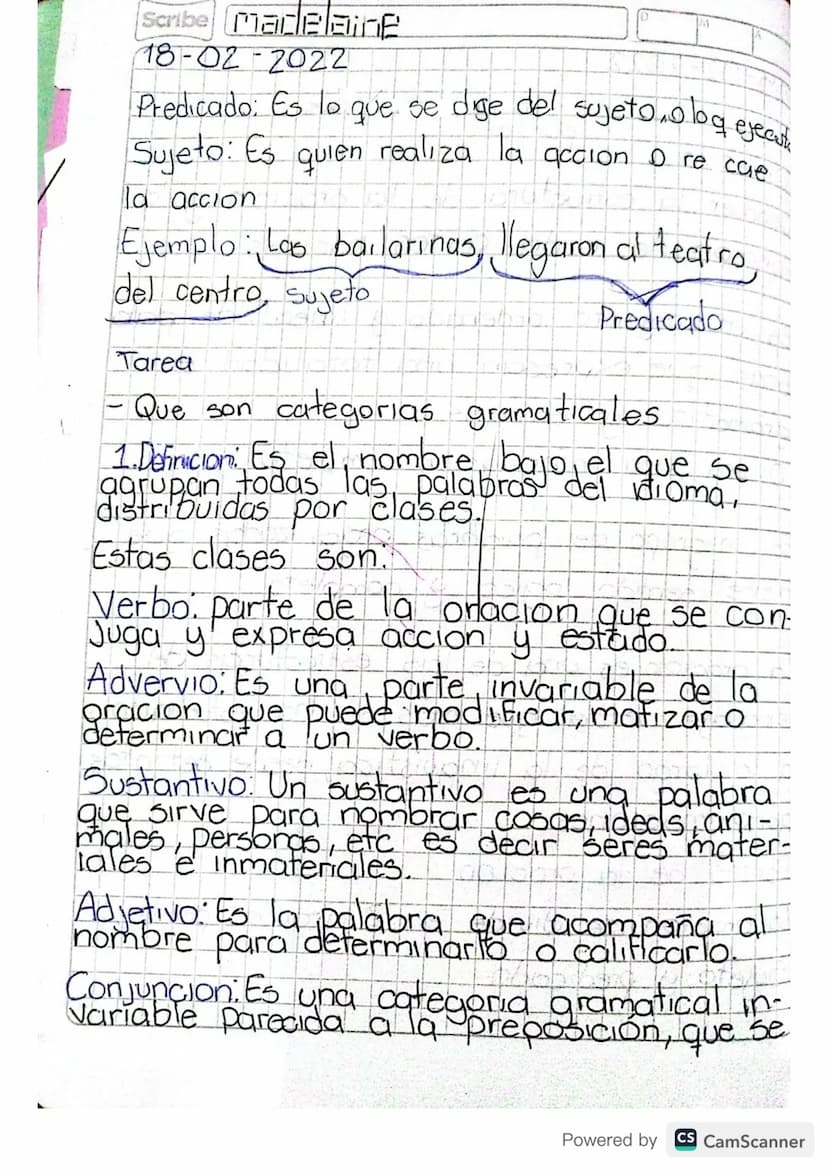 Scribe Madelaine
D M A
18-02-2022
Predicado: Es lo que se dige del sujeto, o lo q ejecuta
Sujeto: Es quien realiza la accion o re cae
la accion
Ejemplo: Las bailarinas, llegaron al teatro
del centro, sujeto
Predicado
Tarea
- Que son categorias gramaticales
1. Definicion: Es el nombre bajo el que se
agrupan todas las palabras del idioma,
distribuidas por clases.
Estas clases son:
Verbo: parte de la oriacion que se con-
juga y expresa accion y estado.
Advervio: Es una parte invariable de la
oracion que puede modificar, matizar o
determinar a un verbo.
Sustantivo: Un sustantivo es una palabra
que sirve para nombrar cosas, ideas, ani-
males, personas, etc es decir seres mater-
iales e inmateriales.
Adjetivo: Es la palabra que acompaña al
nombre para determinarlo o calificarlo.
Conjuncion: Es una categoria gramatical in-
variable parecida a la preposición, que se
Powered by CS CamScanner